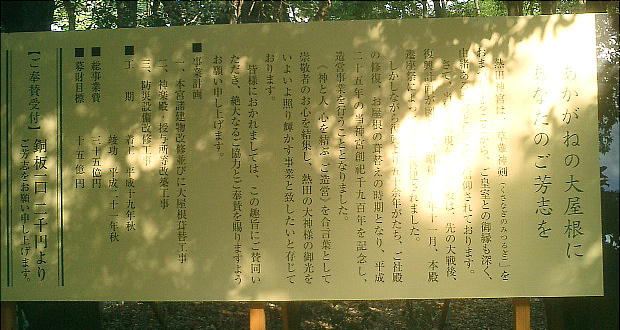 あかがねの大屋根に
あなたのご芳志を
熱田神宮は、草薙神剣(くさなぎのみつるぎ)を
お ご皇室との御縁も深く、
由緒ある 信仰されております。
さて、 は、先の大戦後、
復興計画が 昭和 年十一月、本殿
遷座祭によ されました。
しかしながら 五十余年がたち、ご社殿
の修復、お屋根の葺替えの時期となり、平成
二十五年の当神宮創祀千九百年を記念し、
造営事業を行うこととなりました。
《神と人 心を結ぶご造営》を合言葉として
崇敬者のお心を結集し、熱田の大神様の御光を
いよいよ照り輝かす事業と致したいと存じて
おります。
皆様におかれましては、この趣旨にご賛同い
ただき、絶大なるご協力とご奉賛を賜りますよう
お願い申し上げます。
■事業計画
一、本宮諸建物改修並びに大屋根葺替工事
二、神楽殿・授与所等改築工事
三、防災設備改修工事
■工 期 着工 平成十九年秋
竣功 平成二十一年秋
■総事業費 三十五億円
■募財目標 十五億円
【ご奉賛受付】銅板一口二千円より
ご芳志をお願い申し上げます。